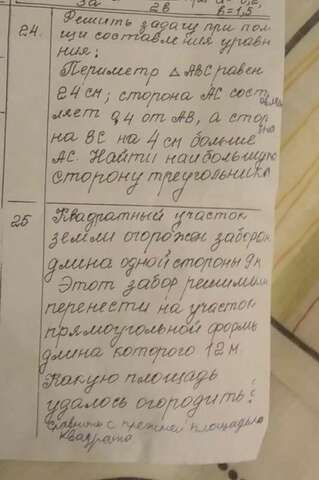 3а
2в
в=1,5
24. Решить задачу при пом
щи составления уравн
ния:
Периметр △ АВС равен
24 см; сторона АС сост
авляет 0,4 от АВ, а стор
на ВС на 4 см больше
АС. Найти наибольшую
сторону треугольника
25 Квадратный участок
земли огорожен забором
длина одной стороны 9м
Этот забор решили
перенести на участок
прямоугольной формы
длина которого 12 м.
Какую площадь
удалось огородить?
Сравнить с прежней площадью
квадрата